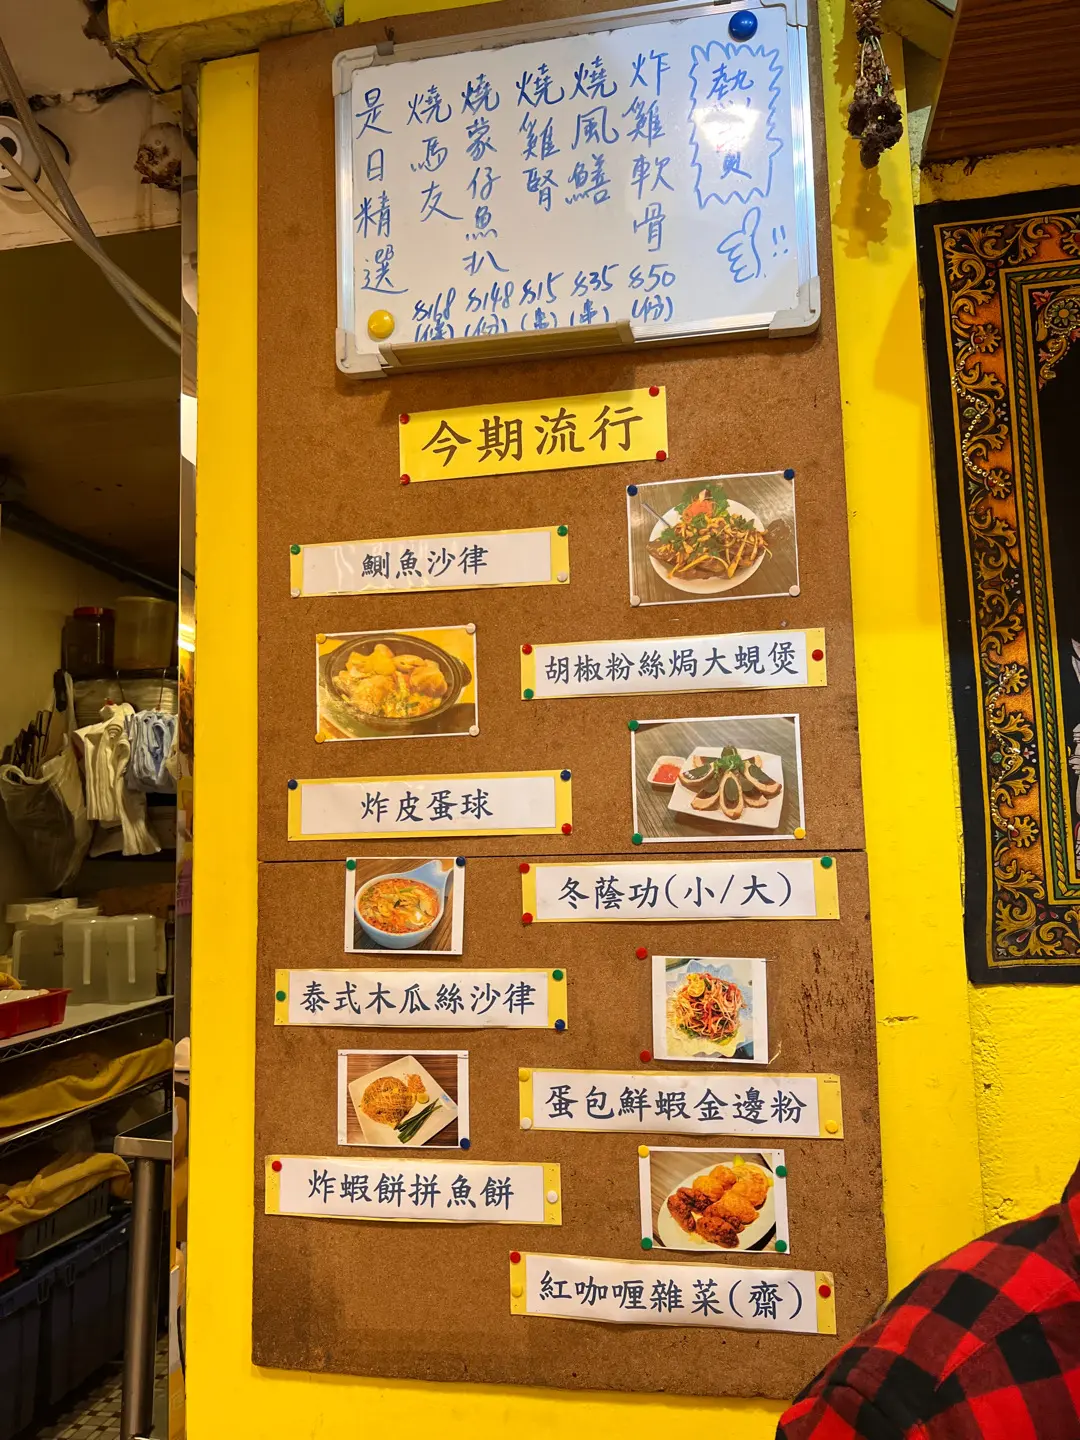 是日精選
燒馬友 $168(條)
燒蒙仔魚扒 $148(份)
燒雞腎 $15(串)
燒風鱔 $35(串)
炸雞軟骨 $50(份)
熱賣
!!
今期流行
鰂魚沙律
胡椒粉絲焗大蜆煲
炸皮蛋球
冬蔭功(小/大)
泰式木瓜絲沙律
蛋包鮮蝦金邊粉
炸蝦餅拼魚餅
紅咖喱雜菜(齋)